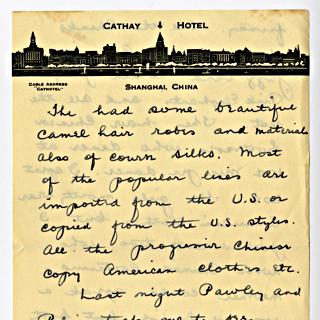 CATHAY HOTEL
CABLE ADDRESS
"CATHOTEL"
SHANGHAI, CHINA
The had some beautiful
camel hair robes and material
also of course silks. Most
of the popular lines are
imported from the U.S. or
copied from the U.S. styles.
All the progressive Chinese
copy American clothes etc.
Last night Pawley and